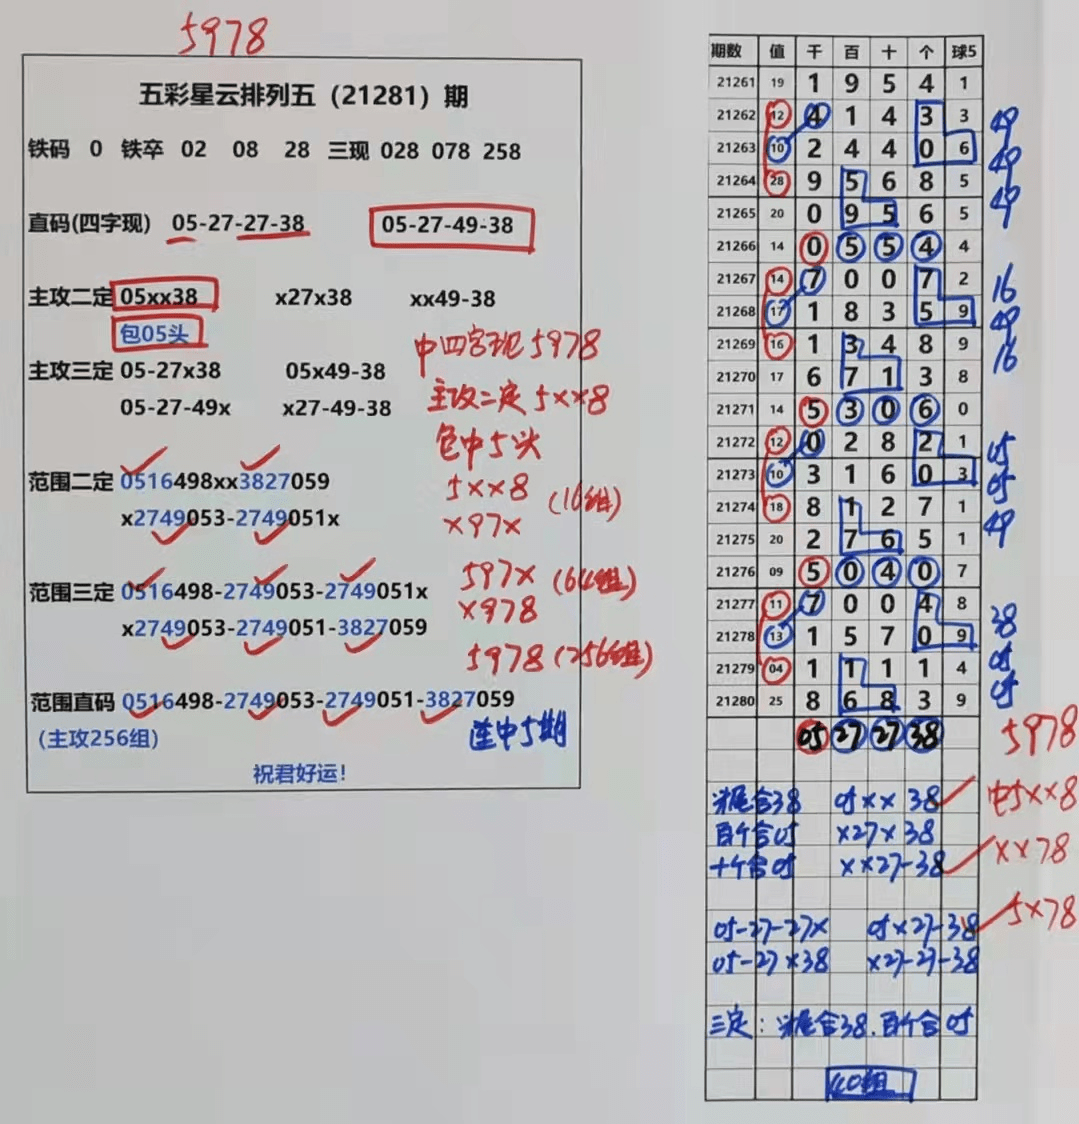 5978
五彩星云排列五（21281）期
铁码 0 铁卒 02 08 28 三现 028 078 258
直码(四字现) 05-27-27-38 05-27-49-38
主攻二定 05xx38 x27x38 xx49-38
包05头
中四字现5978
主攻三定 05-27x38 05x49-38
主攻二定5××8
05-27-49x x27-49-38
包中5头
范围二定 0516498xx3827059
5××8
(16组)
x2749053-2749051x
×97×
范围三定 0516498-2749053-2749051x
597×
(64组)
x2749053-2749051-3827059
×978
5978(256组)
范围直码 0516498-2749053-2749051-3827059
(主攻256组)
连中5期
祝君好运!
期数 值 千 百 十 个 球5
21261 19 1 9 5 4 1
21262 12 4 1 4 3 3 49
21263 10 2 4 4 0 6 49
21264 28 9 5 6 8 5 49
21265 20 0 9 5 6 5
21266 14 0 5 5 4 4
21267 14 7 0 0 7 2 16
21268 17 1 8 3 5 9 49
21269 16 1 3 4 8 9 16
21270 17 6 7 1 3 8
21271 14 5 3 0 6 0
21272 12 0 2 8 2 1 05
21273 10 3 1 6 0 3 05
21274 18 8 1 2 7 1 49
21275 20 2 7 6 5 1
21276 09 5 0 4 0 7
21277 11 7 0 0 4 8 38
21278 13 1 5 7 0 9 05
21279 04 1 1 1 1 4 05
21280 25 8 6 8 3 9
05 27 27 38 5978
头尾合38 05×× 38 中5××8
百个合05 ×27×38
十个合05 ××27-38 ××78
05-27-27× 05×27-38 5×78
05-27×38 ×27-27-38
三定：头尾合38.百个合05
40组